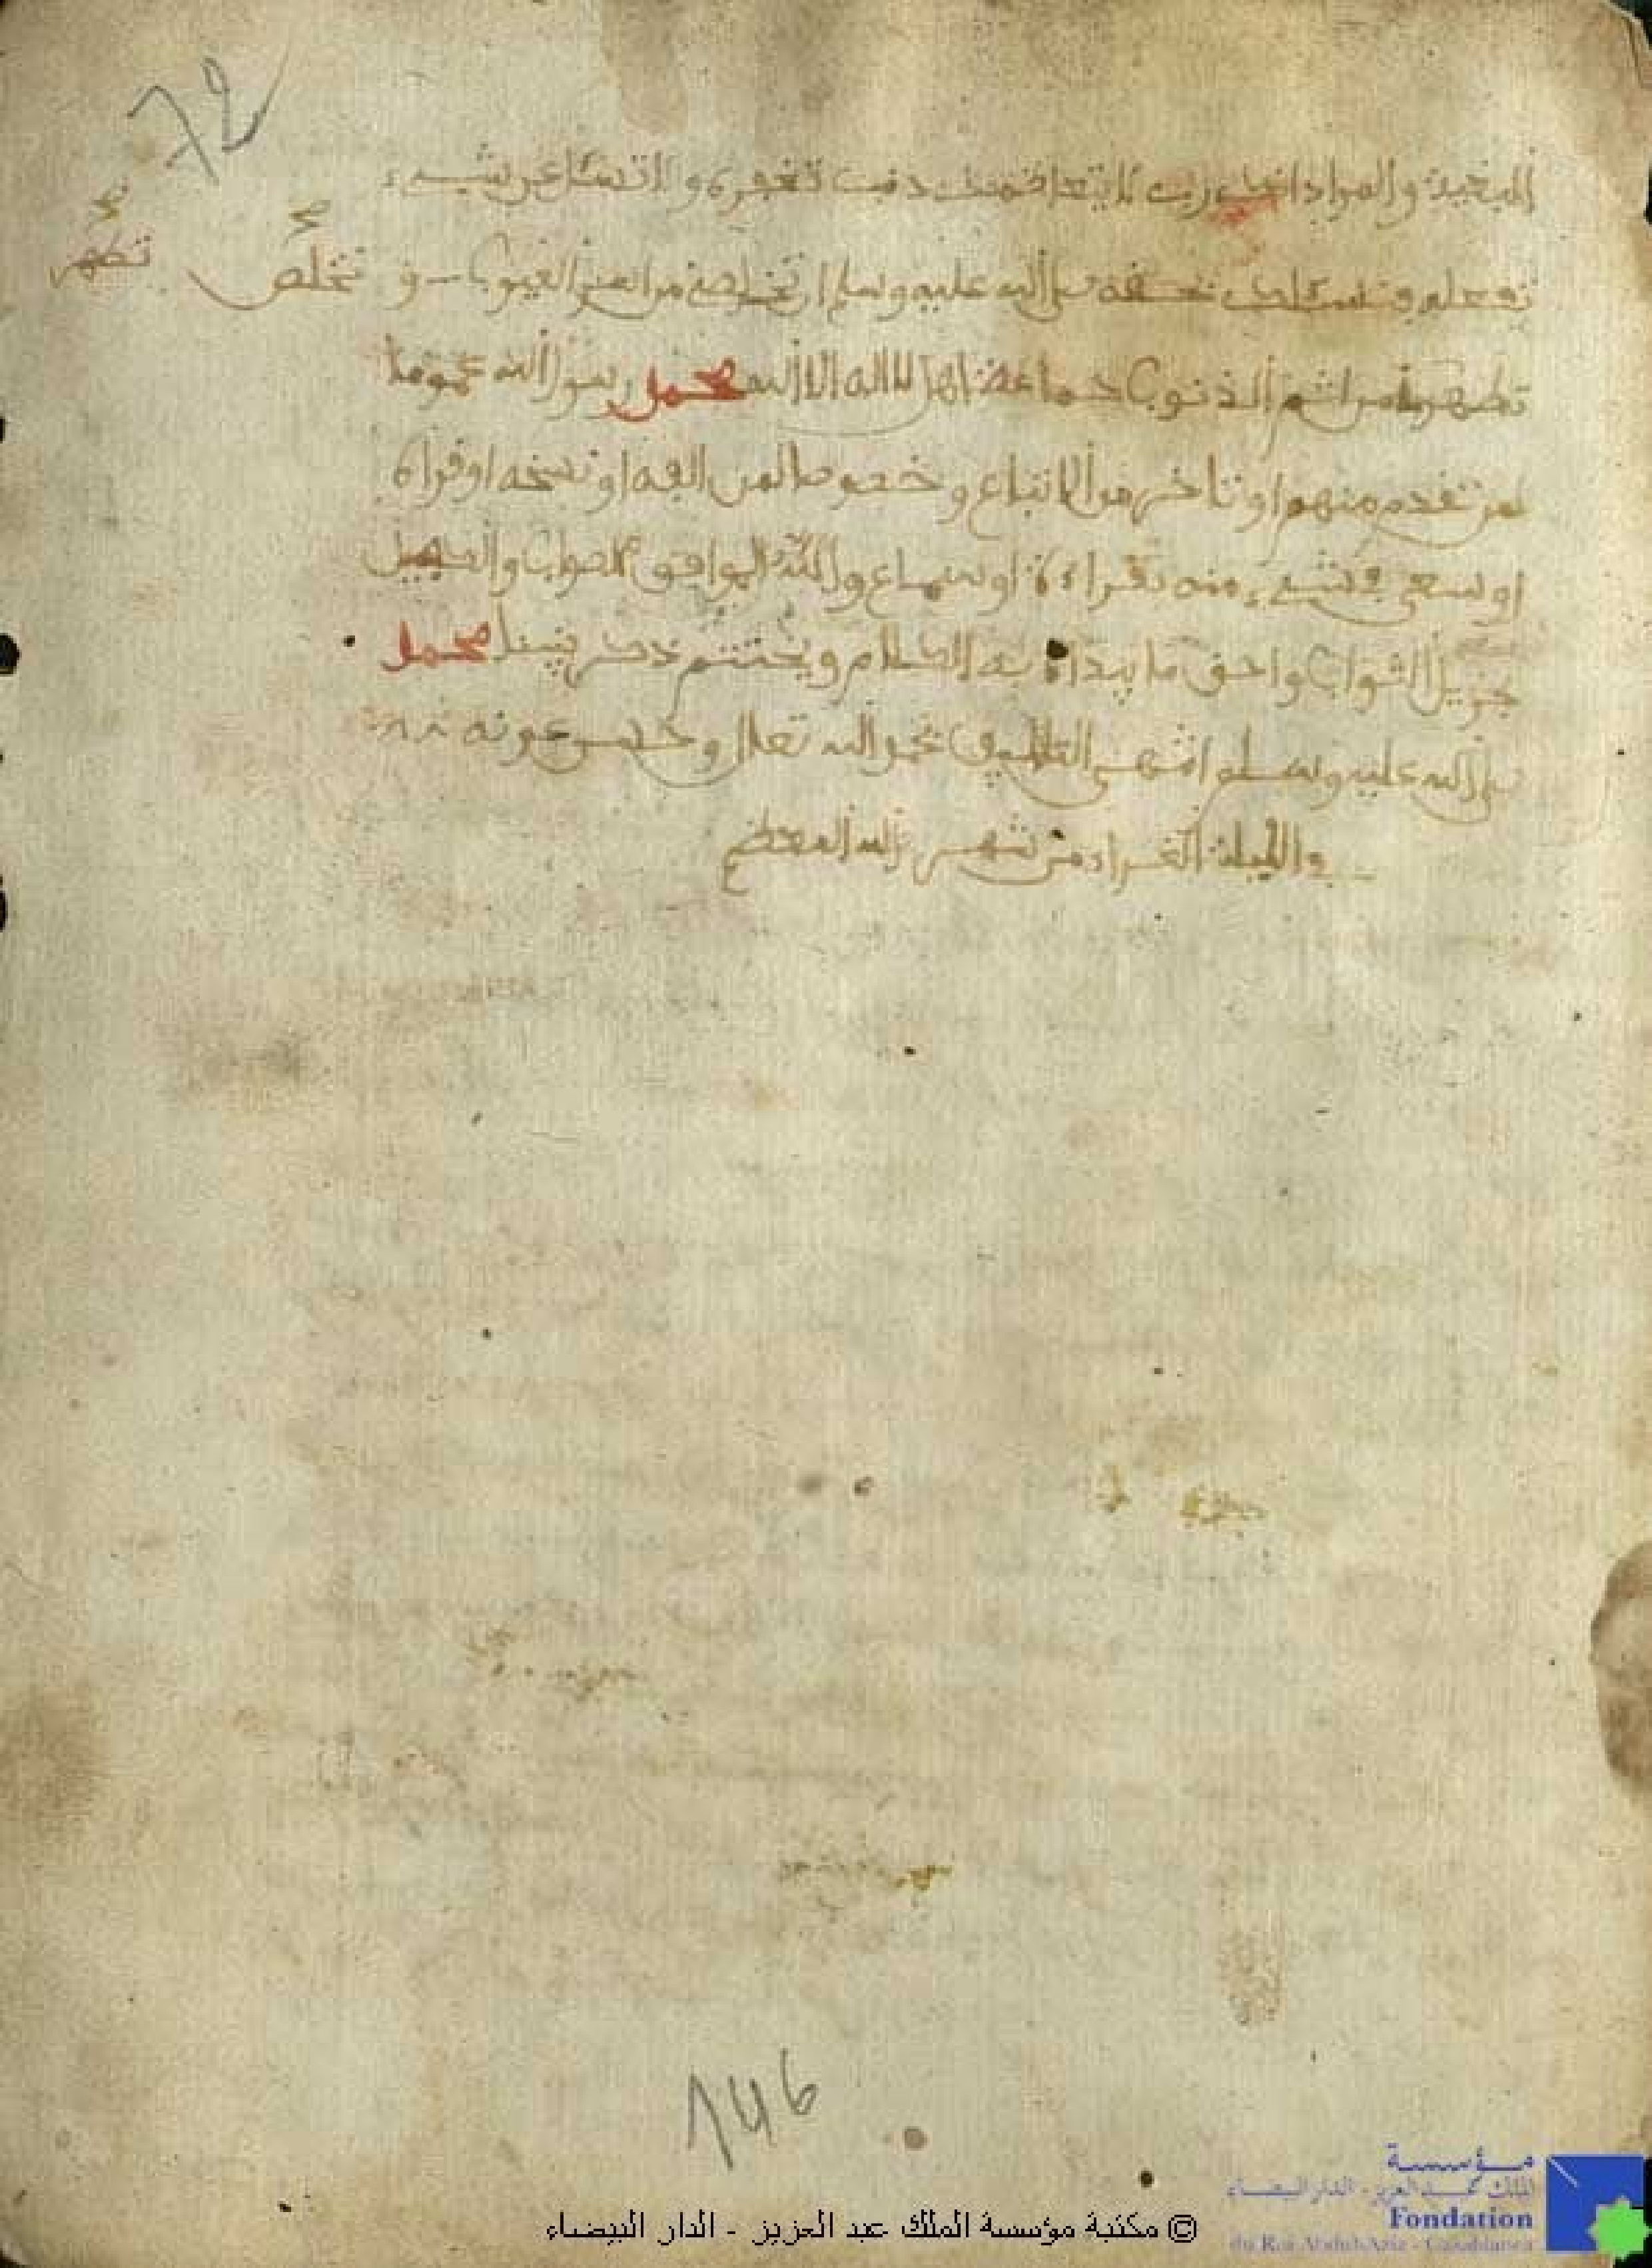 72
المغيبة والمراد انك رب لا يتعاظمك ذنب تغفره ولا تسئل عن شيء
تفعله ونسئلك بحقه صلى الله عليه وسلم ان تخلصنا من العيوب و
تخلص
تطهر
تطهرنا من الذنوب جماعة اهل لا اله الا الله محمد رسول الله عموما
لمن تقدم منهم او تاخر من الاتباع وخصوصا لمن الفه او نسخه او قراه
او سعى في شيء منه بقراءة او سماع والله الموافق للصواب و
جزيل الثواب واحق ما يبدا به الكلام ويختتم ذكر نبينا محمد
صلى الله عليه وسلم انتهى بحمد الله تعلى وحسن عونه
في الليلة الغراء من شهر الله المعظم
146
© مكتبة مؤسسة الملك عبد العزيز - الدار البيضاء
مؤسسة
الملك عبد العزيز - الدار البيضاء
Fondation
du Roi Abdul-Aziz - Casablanca